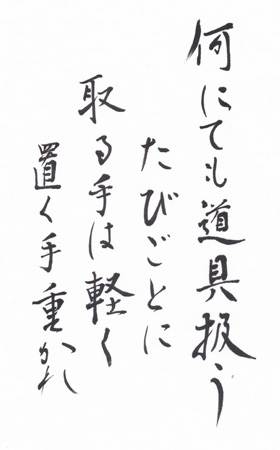 何にても道具扱う
たびごとに
取る手は軽く
置く手重かれ